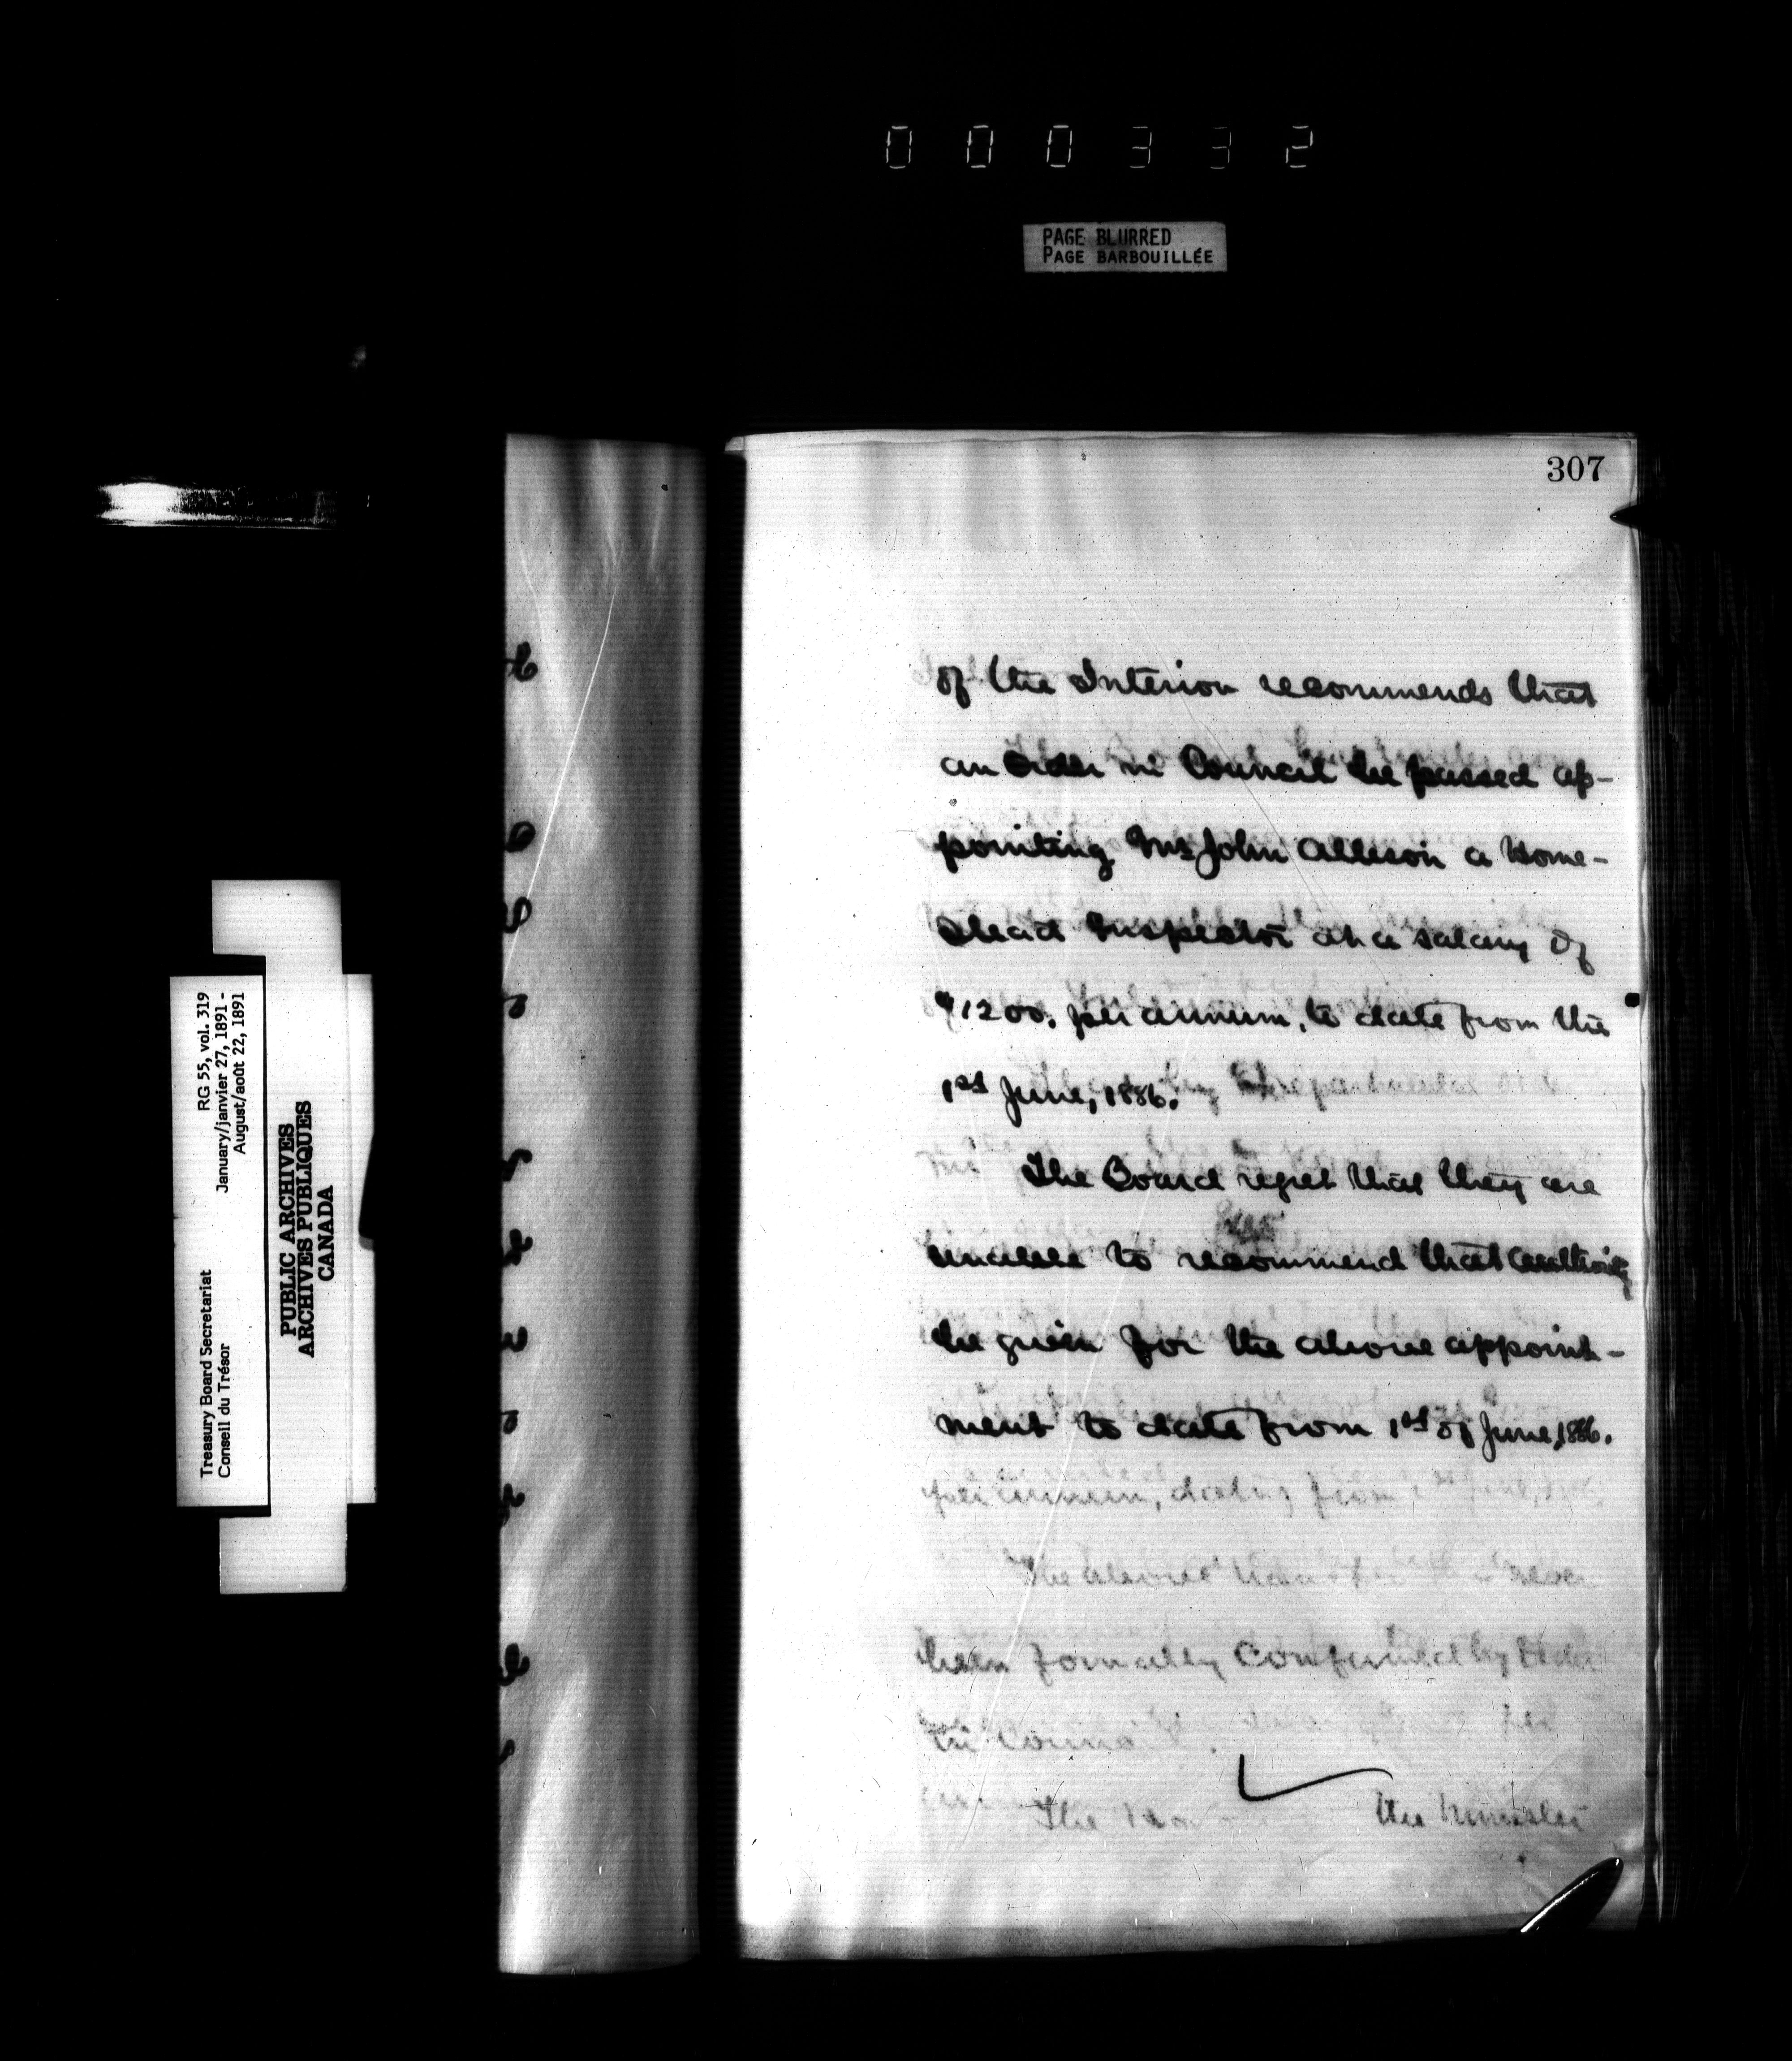 000332
PAGE BLURRED
PAGE BARBOUILLÉE
307
of the Interior recommends that
an Order in Council be passed ap-
pointing Mr John Allison a Home-
stead Inspector at a salary of
$1200. per annum, to date from the
1st June, 1886.
The Board regret that they are
unable to recommend that authority
be given for the above appoint-
ment to date from 1st of June, 1886.
per annum, dating from 1st June,
The above transfer
been formally confirmed by Order
in Council.
The the Minister
RG 55, vol. 319
Treasury Board Secretariat January/janvier 27, 1891 -
Conseil du Trésor August/août 22, 1891
PUBLIC ARCHIVES
ARCHIVES PUBLIQUES
CANADA